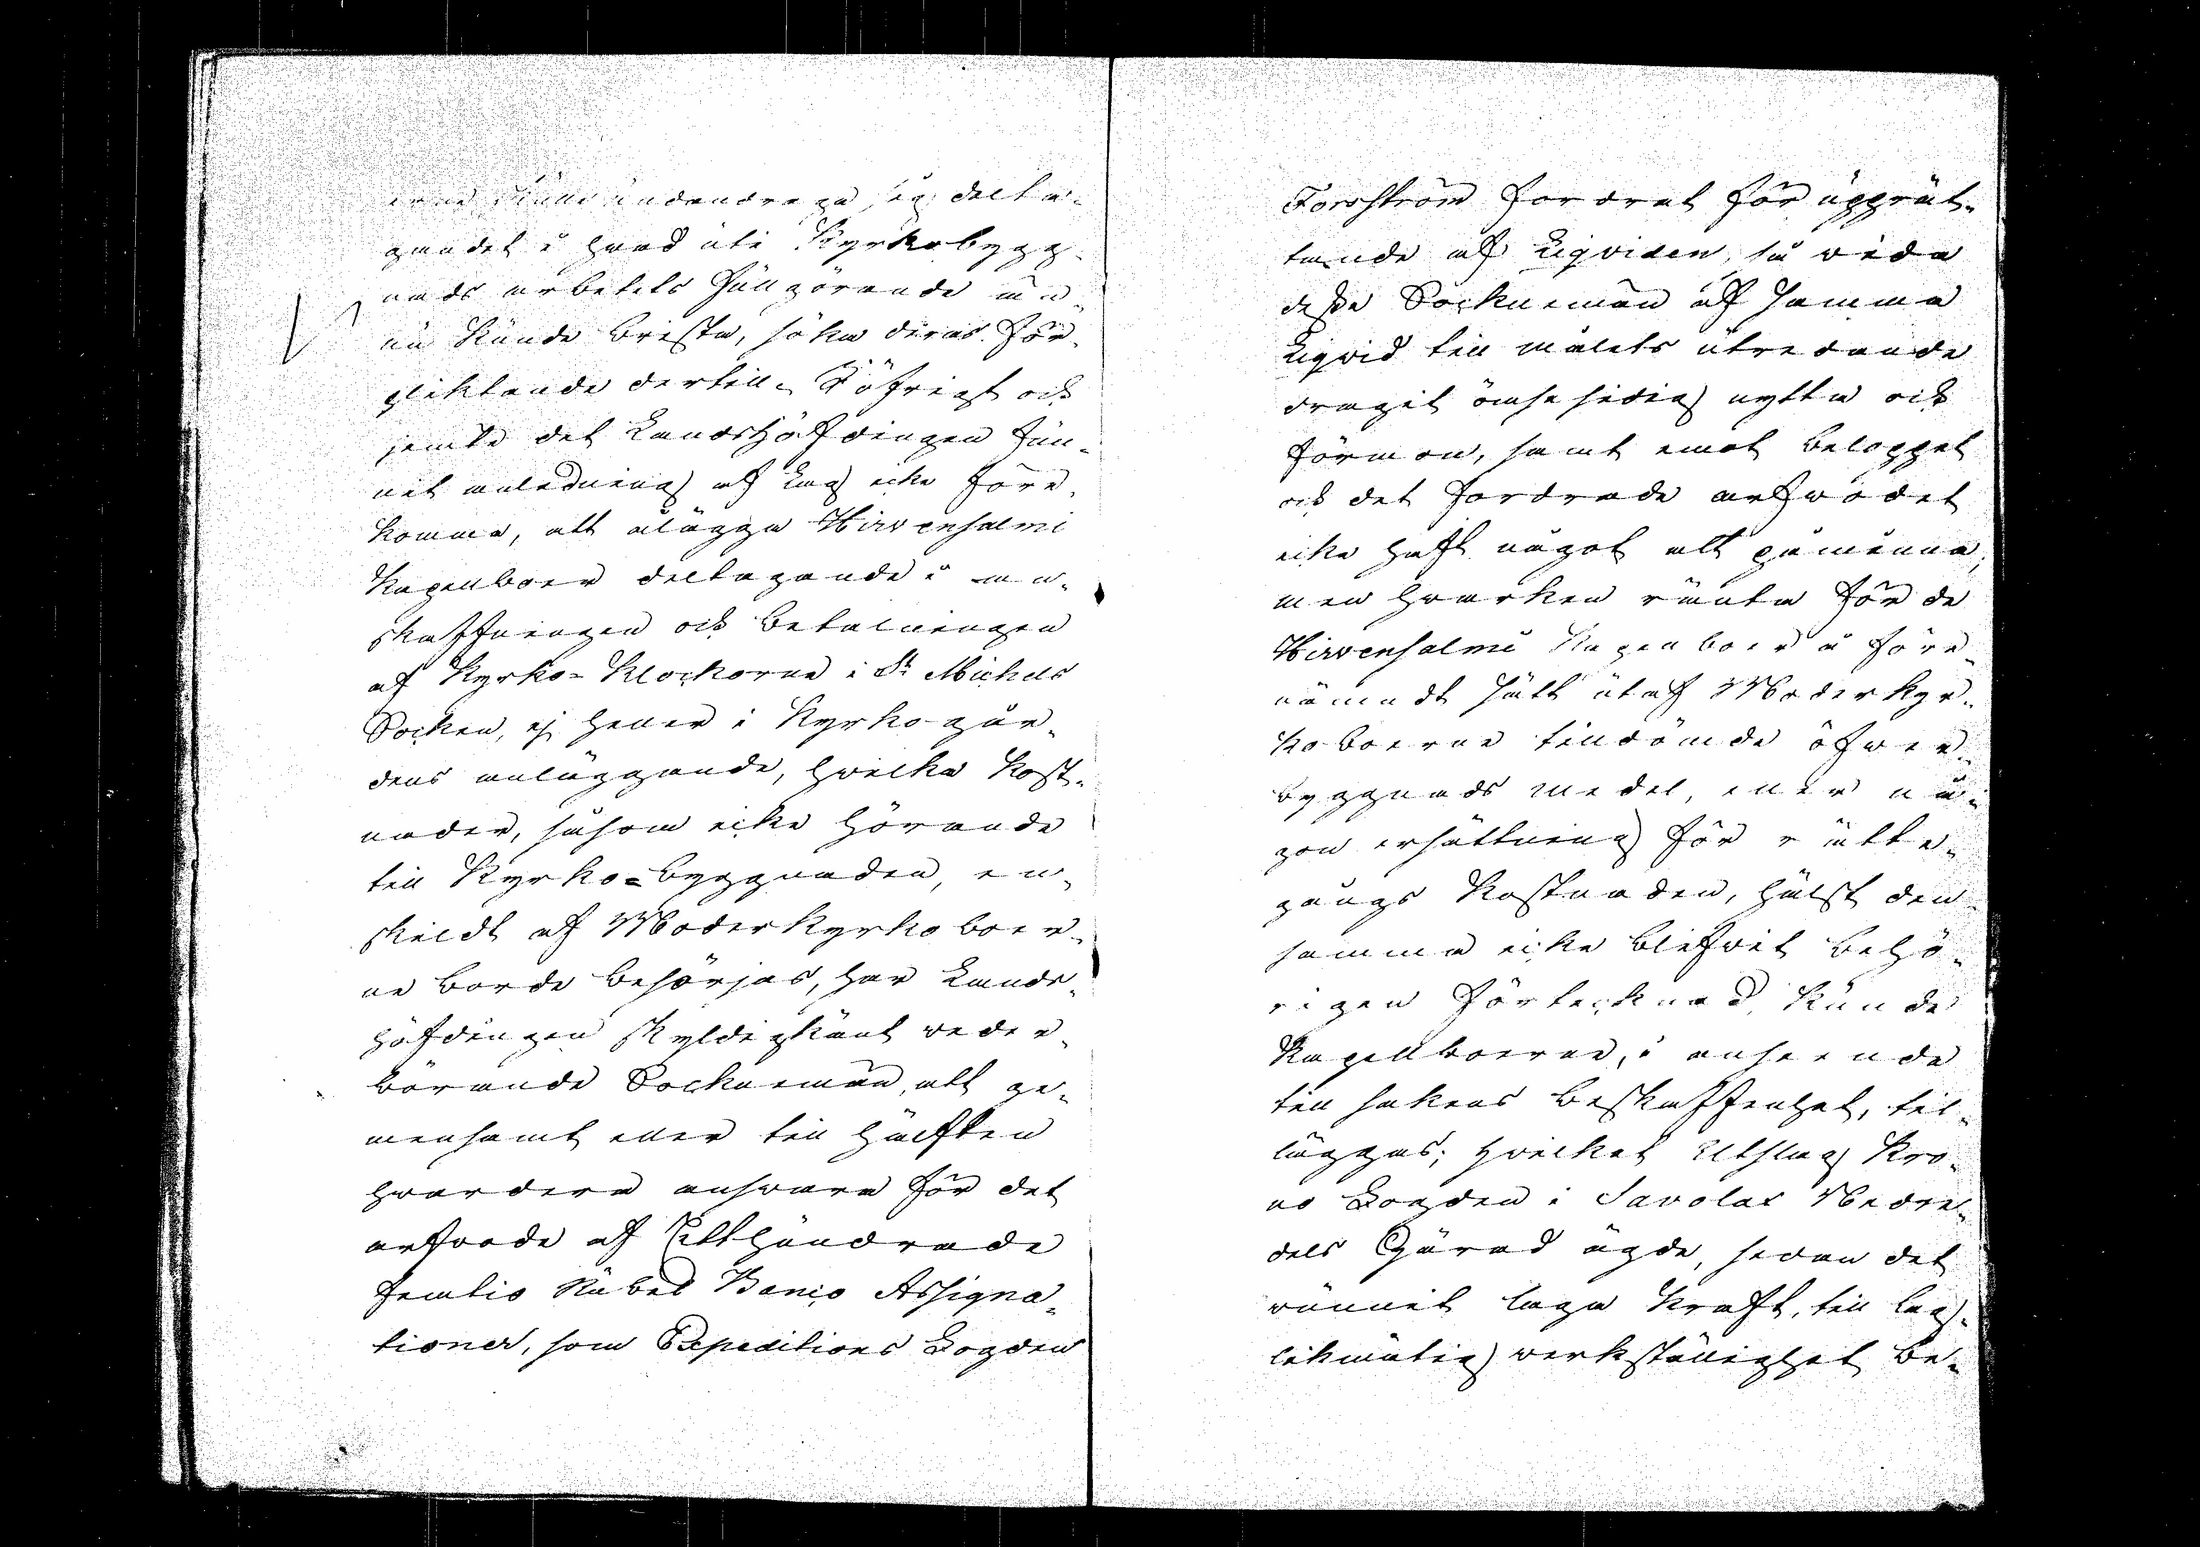 erne skulle undandraga sig delta-
gandet i hvad uti Kyrkobygg-
nads arbetets fullgörande än-
nu kunde brista, söka deras för-
pliktande dertill. I öfrigt och
jemte det Landshöfdingen fun-
nit anledning af Lag icke före-
komma, att ålägga Hirvensalmi
Kapellboer deltagande i an-
skaffningen och betalningen
af Kyrko-Klockorne i St Michels
Socken, ej heller i Kyrkogår-
dens anläggande, hvilka kost-
nader, såsom icke hörande
till Kyrko-byggnaden, en-
skildt af Moderkyrkoboer-
ne borde besörjas, har Lands-
höfdingen skyldigkänt veder-
börande Sockneman, att ge-
mensamt eller till hälften
hvardera ansvara för det
arfvode af Etthundrade
femtio Rubel Banco Assigna-
tioner, som Expeditions Fogden
Forsström fordrat för upprät-
tande af Liqviden, så vida
desse Socknemän af samma
Liqvid till målets utredande
dragit ömsesidig nytta och
förmon, samt emot beloppet
och det fordrade arfvodet
icke haft något att påminna,
men hvarken ränta för de
Hirvensalmi Kapellboer å före-
nämndt sätt utaf Moderkyr-
koboerne tilldömde öfver-
byggnads medel, eller nå-
gon ersättning för rätte-
gångs kostnaden, hälst den-
samma icke blifvit behö-
rigen förtecknad, kunde
Kapellboerne, i anseende
till sakens beskaffenhet, til-
läggas; hvilket Utslag Kro-
no Fogden i Savolax Nedre-
dels Härad ägde, sedan det
vunnit laga kraft, till lag-
likmätig verkställighet be-